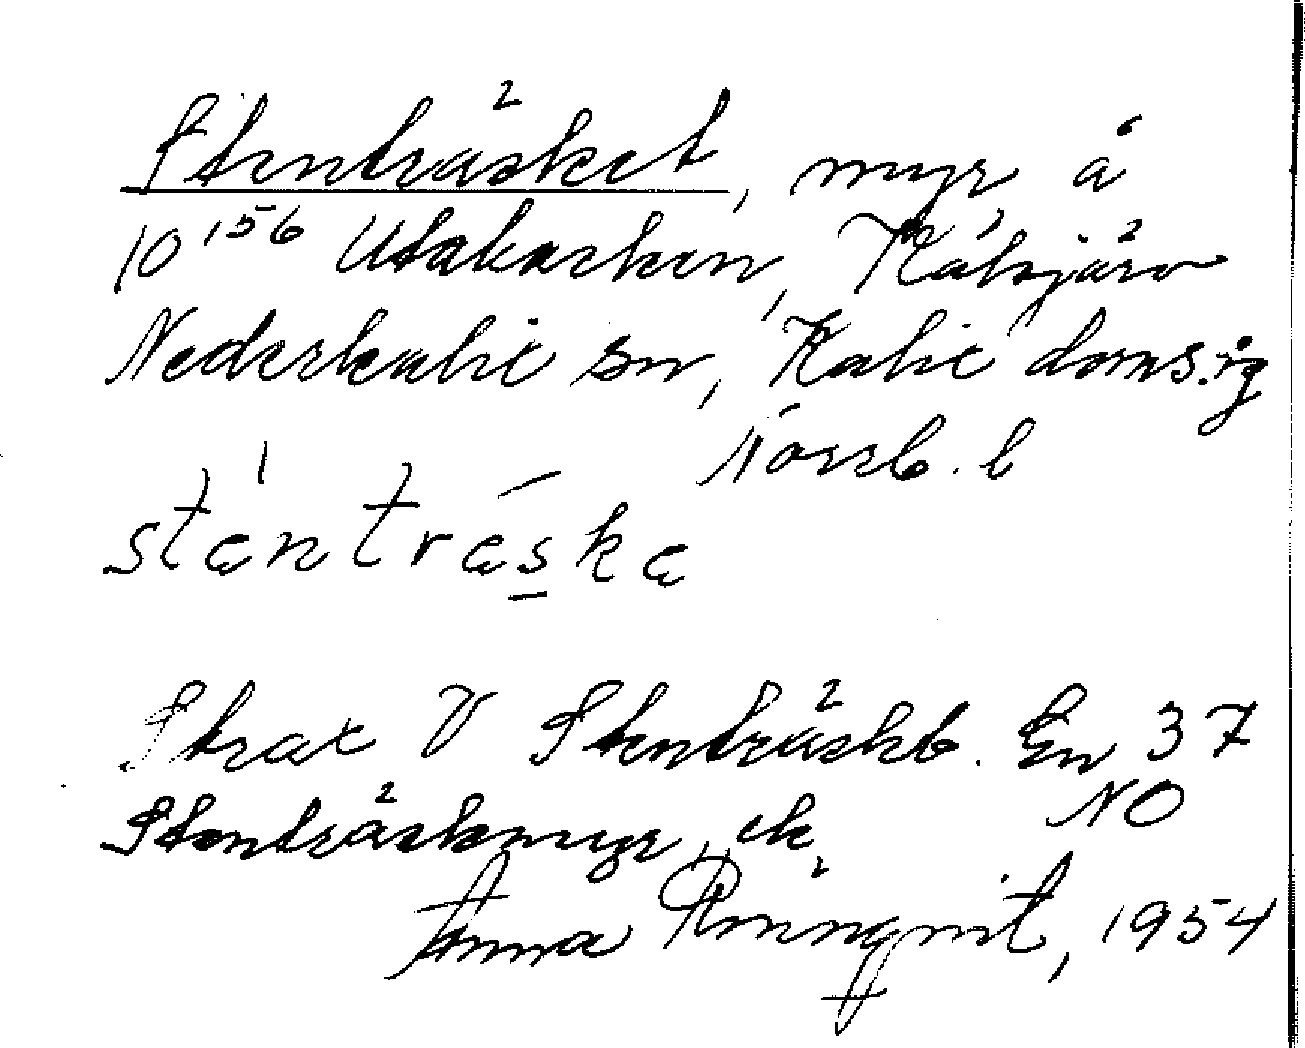 Stenträsket, myr, å
10¹⁵⁶ Utakasken, Kälsjärv
Nederkalix sn, Kalix doms.ig
Norrb. l
stæntræska
Strax V Stenträskb. En 37
Stenträskmyr, ek NO
Anna Rönnqvist, 1954